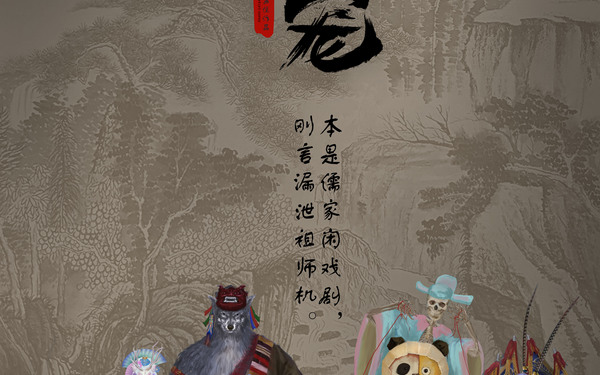 本是儒家闲戏剧，
刚言漏泄祖师机。